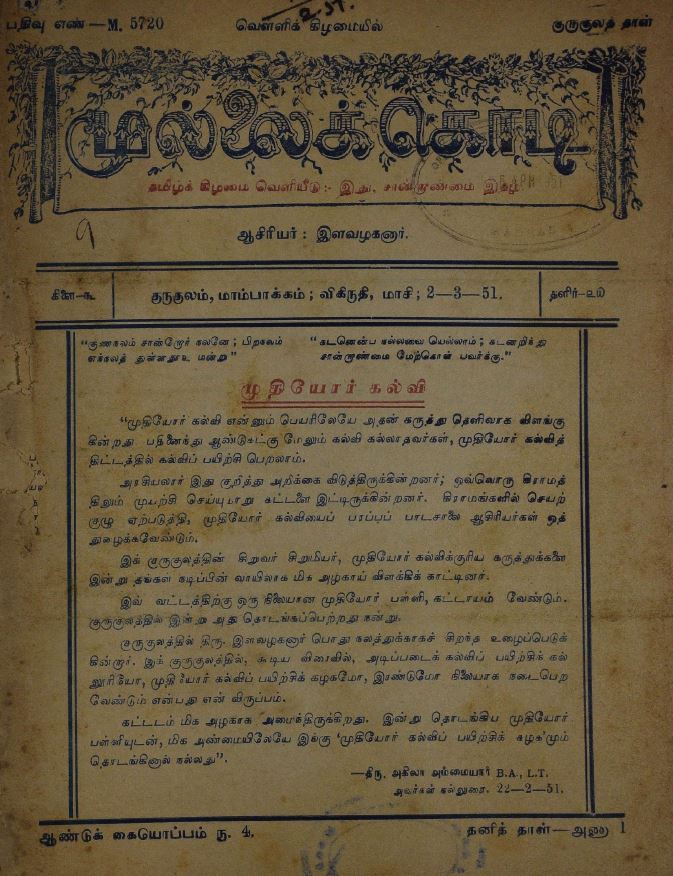 2.51.
பதிவு எண்—M. 5720 வெள்ளிக் கிழமையில் குருகுலத் தாள்
முல்லைக்கொடி
தமிழ்க் கிழமை வெளியீடு:- இது, சான்றாண்மை இதழ்
9
ஆசிரியர் : இளவழகனார்.
கிளை-௯ குருகுலம், மாம்பாக்கம் ; விகிருதி, மாசி ; 2—3—51. தளிர்-௨௰
“குணநலம் சான்றோர் நலனே ; பிறநலம் “கடனென்ப நல்லவை யெல்லாம் ; கடனறிந்து
எந்நலத் துள்ளதூஉ மன்று” சான்றாண்மை மேற்கொள் பவர்க்கு.”
முதியோர் கல்வி
“முதியோர் கல்வி என்னும் பெயரிலேயே அதன் கருத்து தெளிவாக விளங்கு
கின்றது பதினைந்து ஆண்டுகட்கு மேலும் கல்வி கல்லாதவர்கள், முதியோர் கல்வித்
திட்டத்தில் கல்விப் பயிற்சி பெறலாம்.
அரசியலார் இது குறித்து அறிக்கை விடுத்திருக்கின்றனர் ; ஒவ்வொரு கிராமத்
திலும் முயற்சி செய்யுமாறு கட்டளை இட்டிருக்கின்றனர். கிராமங்களில் செயற்
குழு ஏற்படுத்தி, முதியோர் கல்வியைப் பரப்பப் பாடசாலை ஆசிரியர்கள் ஒத்
துழைக்கவேண்டும்.
இக் குருகுலத்தின் சிறுவர் சிறுமியர், முதியோர் கல்விக்குரிய கருத்துக்களை
இன்று தங்கள் நடிப்பின் வாயிலாக மிக அழகாய் விளக்கிக் காட்டினர்.
இவ் வட்டத்திற்கு ஒரு நிலையான முதியோர் பள்ளி, கட்டாயம் வேண்டும்.
குருகுலத்தில் இன்று அது தொடங்கப்பெற்றது நன்று.
குருகுலத்தில் திரு. இளவழகனார் பொது நலத்துக்காகச் சிறந்த உழைப்பெடுக்
கின்றார். இக் குருகுலத்தில், கூடிய விரைவில், அடிப்படைக் கல்விப் பயிற்சிக் கல்
லூரியோ, முதியோர் கல்விப் பயிற்சிக் கழகமோ, இரண்டுமோ நிலையாக நடைபெற
வேண்டும் என்பது என் விருப்பம்.
கட்டடம் மிக அழகாக அமைந்திருக்கிறது. இன்று தொடங்கிய முதியோர்
பள்ளியுடன், மிக அண்மையிலேயே இங்கு ‘முதியோர் கல்விப் பயிற்சிக் கழக’மும்
தொடங்கினால் நல்லது”.
—திரு. அகிலா அம்மையார் B.A., L.T.
அவர்கள் நல்லுரை. 22—2—51.
ஆண்டுக் கையொப்பம் ரூ. 4. தனித் தாள்—அணா 1